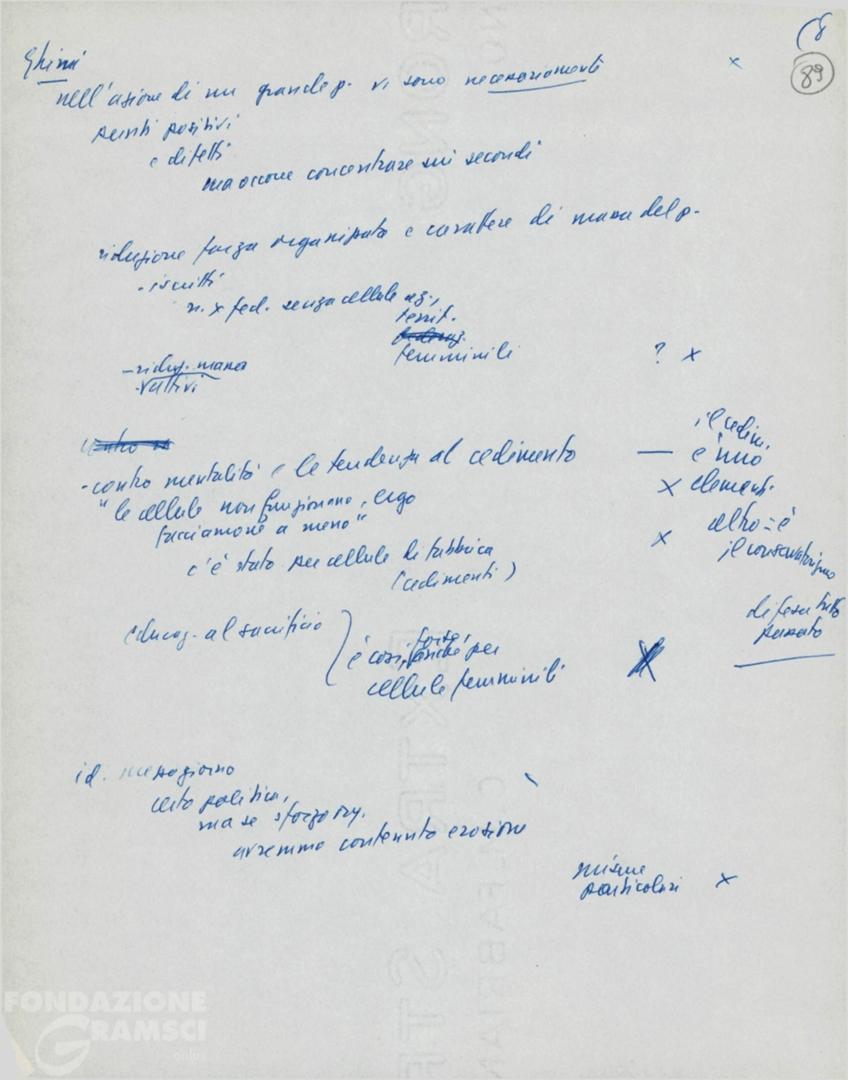 (8
89
Ghini
nell'azione di un grande p. vi sono necessariamente x
punti positivi
e difetti
ma occorre concentrare sui secondi
riduzione forza organizzata e carattere di massa del p.
- iscritti
n. x fed. senza cellule az.,
territ.
femminili ? x
- riduz. massa
attivi
- contro mentalità e le tendenze al cedimento — il cedim.
è uno
"le cellule non funzionano, ergo x elemento
facciamone a meno" altro = è
il conservatorismo
c'è stato per cellule di fabbrica x
(cedimenti)
difesa tutto
passato
educaz. al sacrificio
è così, forse anche per
cellule femminili
id. mezzogiorno
certo politica,
ma se sforzo org.
avremmo contenuto erosione
misure
particolari x
FONDAZIONE
GRAMSCI
onlus